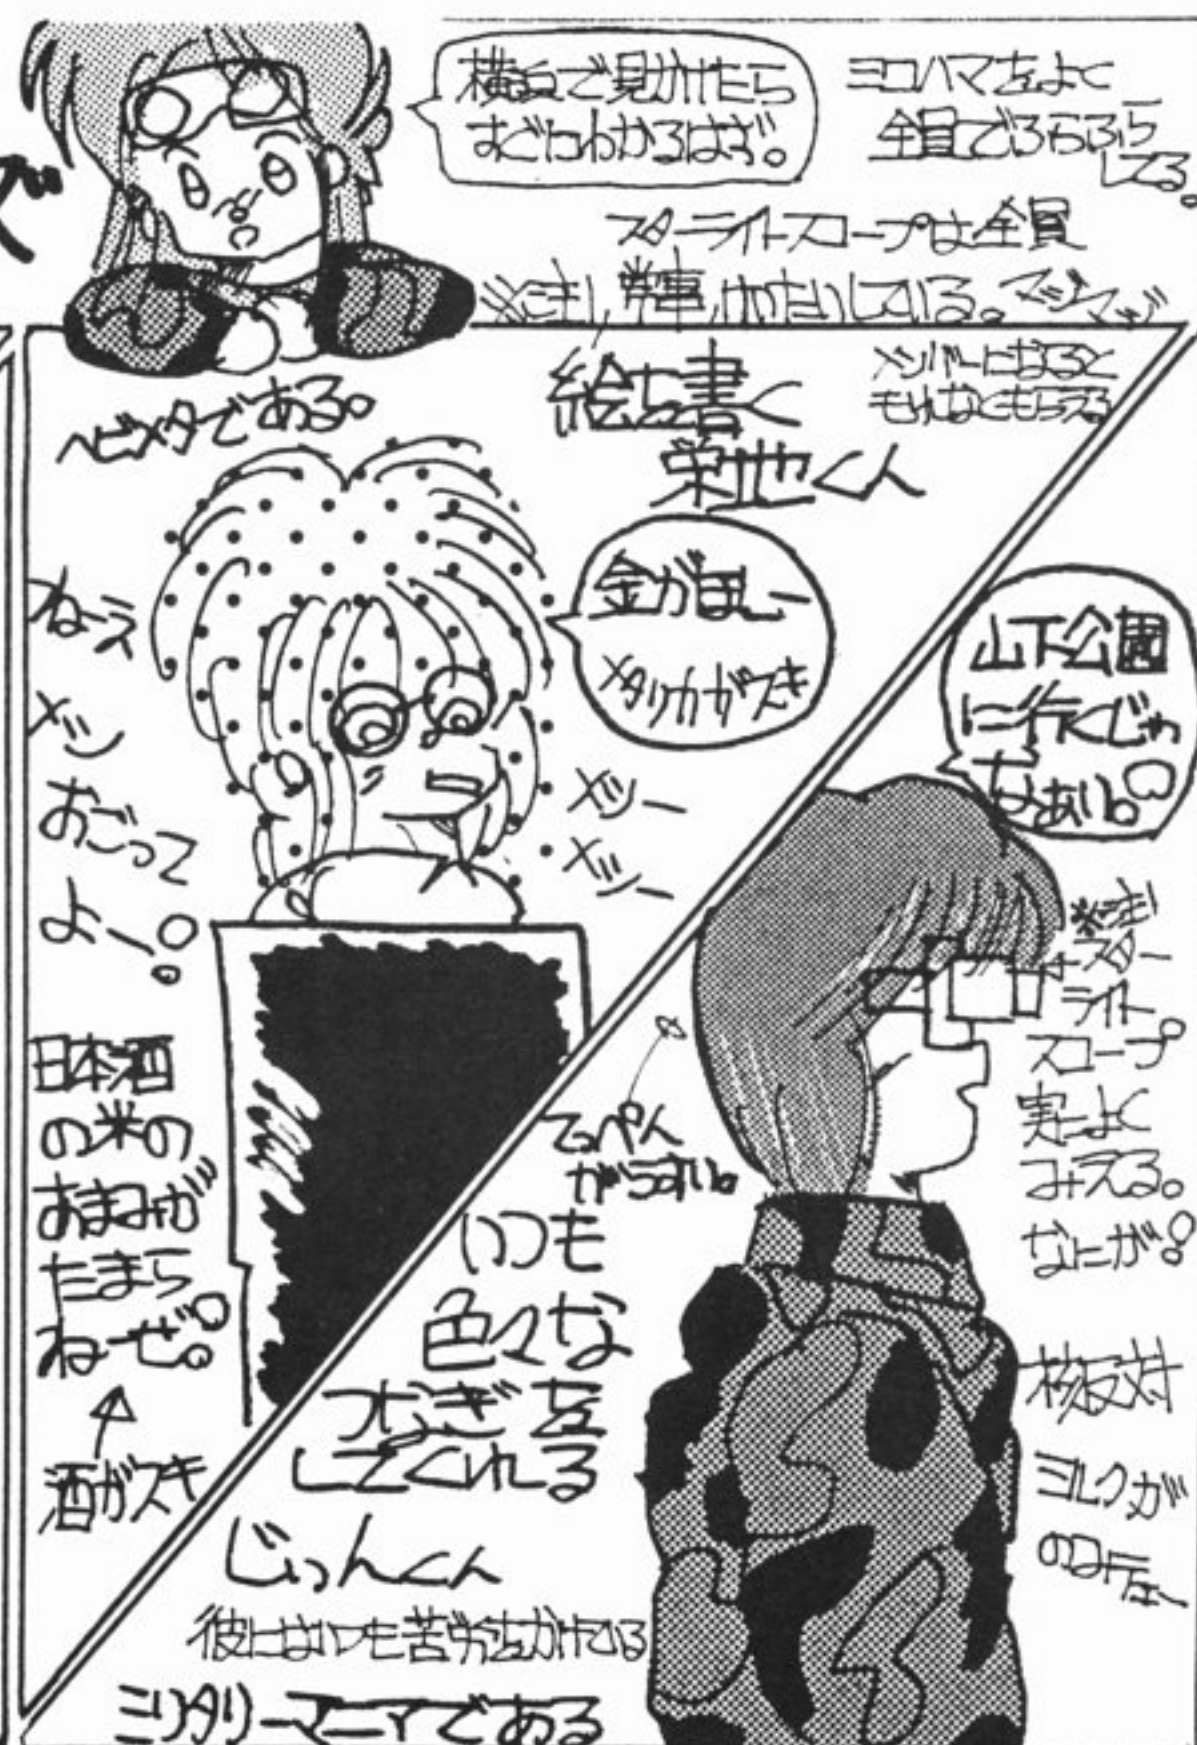 横浜で見かけたら
すぐわかるはず。
ヨコハマをよく
全員でふらふら
してる。
スターライトスコープは全員
※注し
している。マジマジ
ヘビメタである。
絵を書く
栄地くん
メンバーになると
もれなくもらえる
金がほしー
メタリカがスキ
ねーえ
メシ
おごって
よー!
メシー
メシー
山下公園
に行くじゃ
なあい。
※注
スター
ライト
スコープ。
実によく
みえる。
なにが!
日本酒
の米の
あまみが
たまら
ねーぜ。!
酒がスキ
てっぺん
がうすい。
いつも
色々な
つなぎを
してくれる
じゅんくん
彼にはいつも苦労をかけている
ミリタリーマニアである
核反対
ミルクが
のみてー